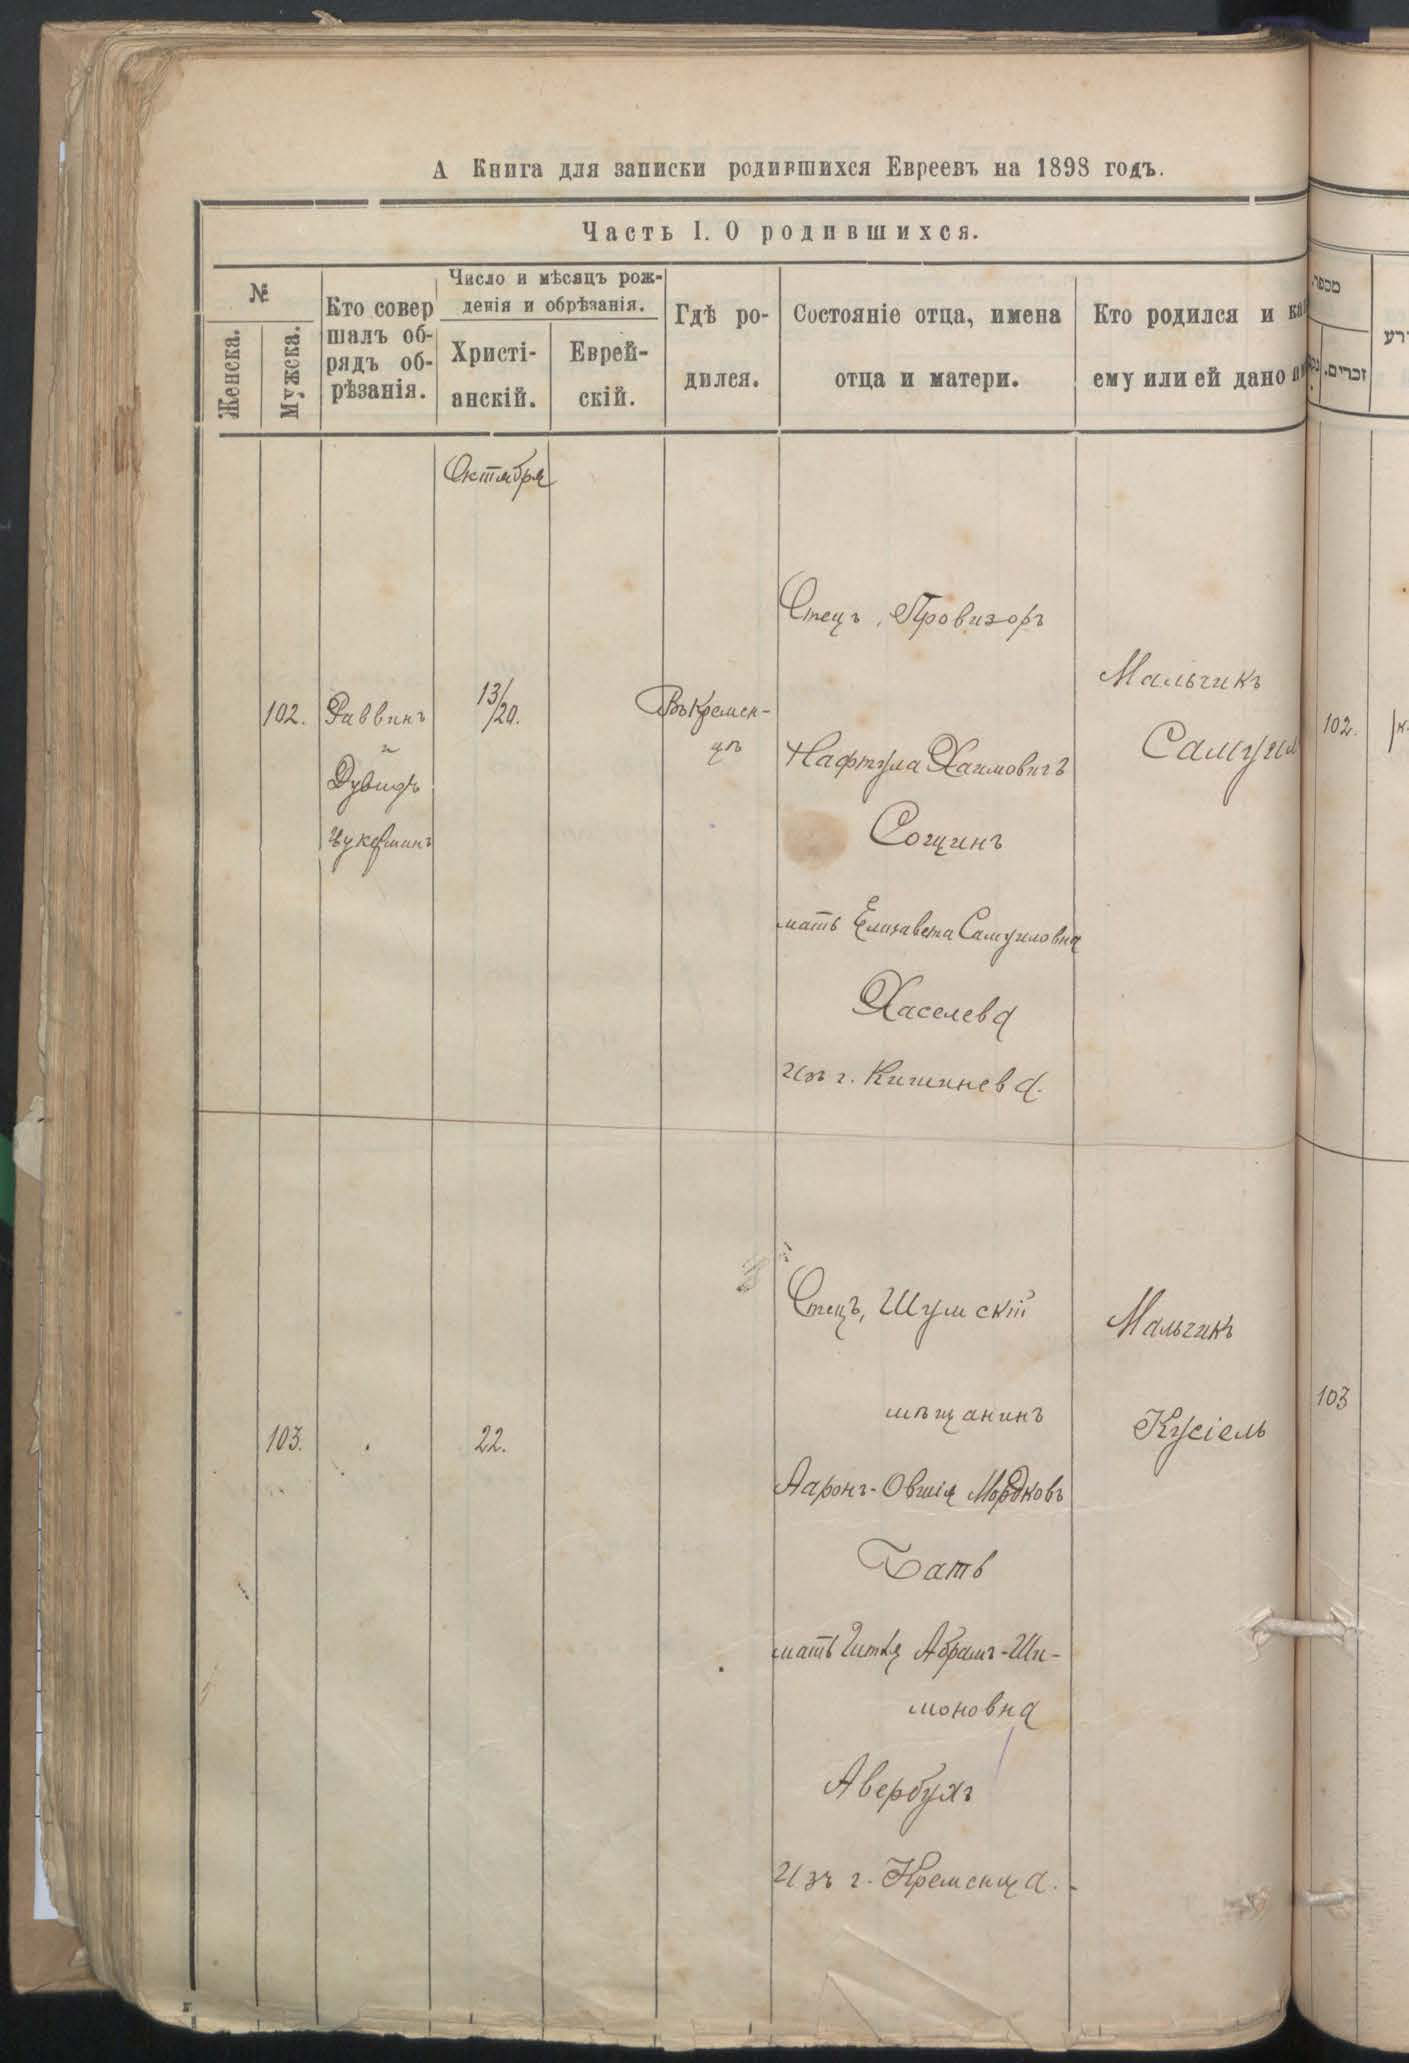 А Книга для записки родившихся Евреевъ на 1898 годъ.
Часть I. О родившихся.
№
Женска.
Мужска.
Кто совер
шалъ об-
рядъ об-
рѣзанія.
Число и мѣсяцъ рож-
денія и обрѣзанія.
Христі-
анскій.
Еврей-
скій.
Гдѣ ро-
дился.
Состояніе отца, имена
отца и матери.
Кто родился и ка
ему или ей дано
Октября
102.
Раввинъ
и
Дувидъ
Цукерманъ
13/
/20.
Въ Кремен-
цѣ
Отецъ, Провизоръ
Нафтула Хаимовичъ
Сощинъ
мать Елизавета Самуиловна
Хаселева
Изъ г. Кишинева.
Мальчикъ
Самуил
103.
22.
Отецъ, Шумскій
мѣщанинъ
Ааронъ-Овшія Мордковъ
Батъ
мать Гитля Абрамъ-Ши-
моновна
Авербухъ
Изъ г. Кременца.-
Мальчикъ
Кусіель
מספר.
זכרים.
102.
103